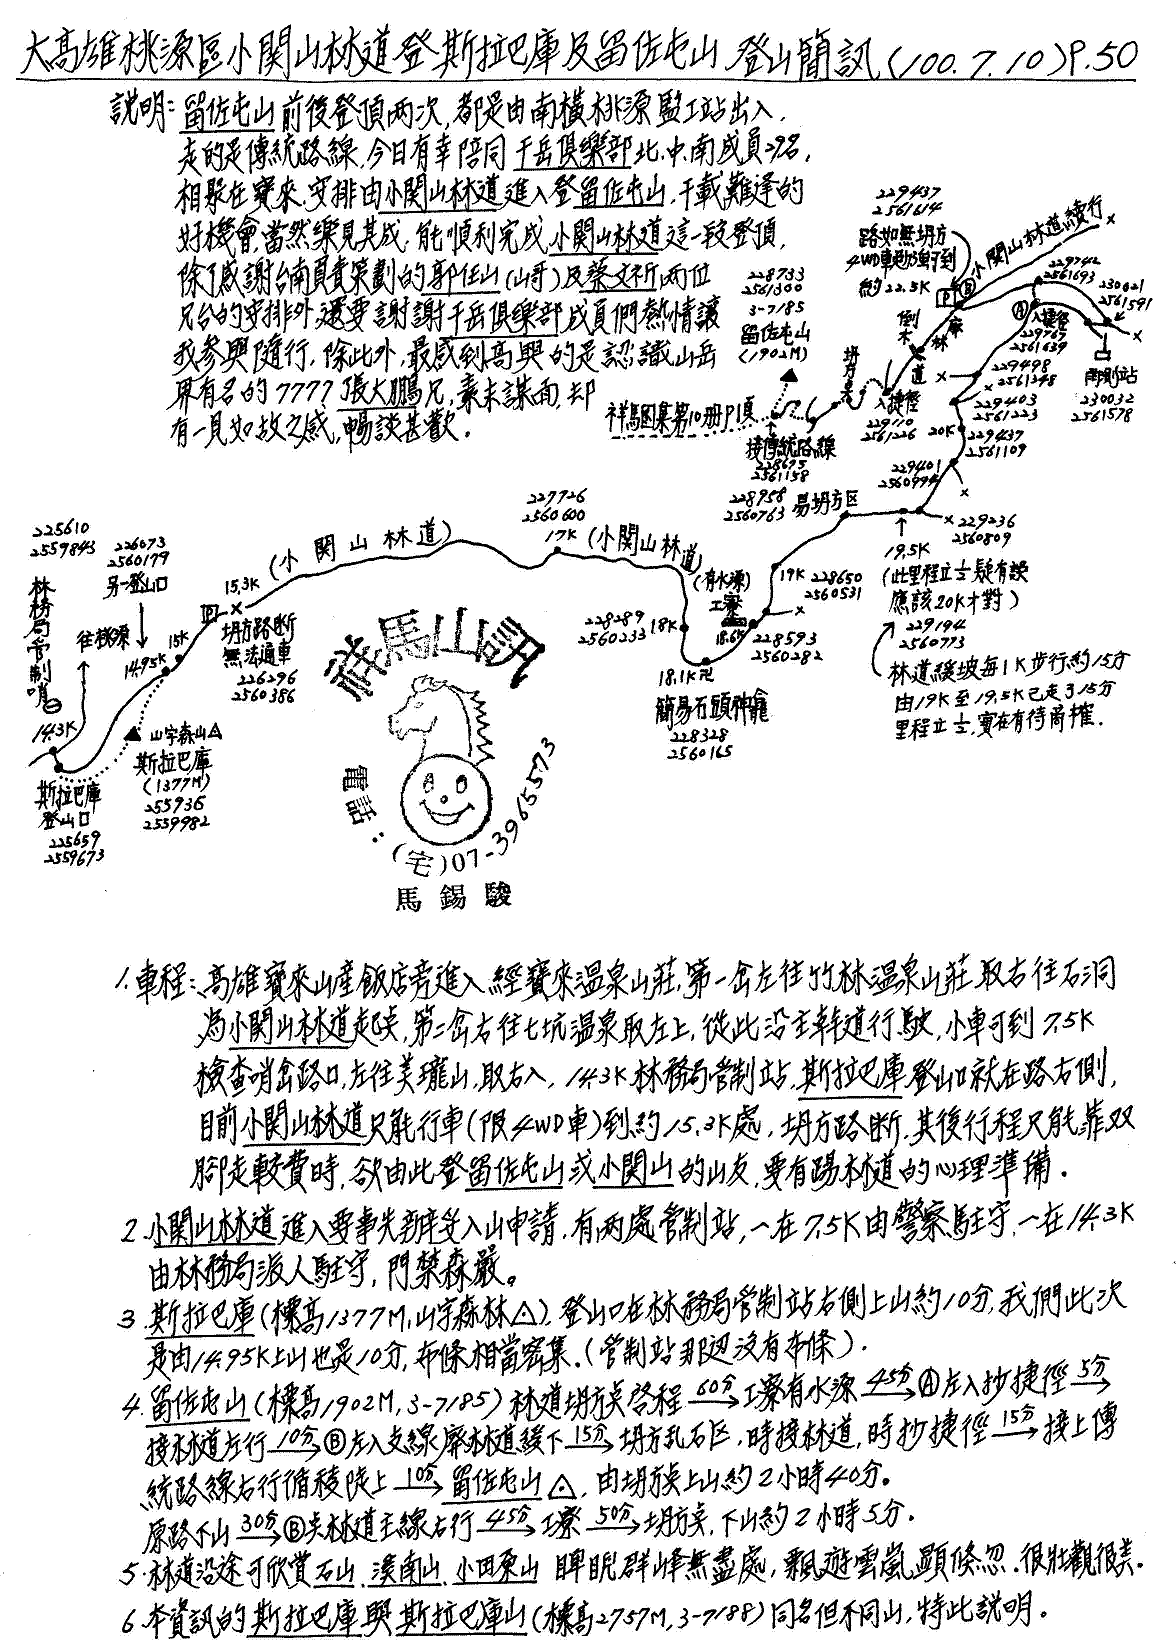 大高雄桃源區小関山林道登斯拉巴庫及留佐屯山登山簡訊(100.7.10)P.50
説明:留佐屯山前後登頂两次,都是由南橫桃源監工站出入,
走的是傳統路線,今日有幸陪同千岳俱樂部北.中.南成員29名,
相聚在寶來.安排由小関山林道進入登留佐屯山,千載難逢的
好機會,當然樂見其成,能順利完成小関山林道這一段登頂,
除了感謝台南負責策劃的郭任山(山哥)及蔡文祈两位
兄台的安排外,還要謝謝千岳俱樂部成員們熱情讓
我參與隨行,除此外,最感到高興的是認識山岳
界有名的7777張大鵬兄,素未謀面,却
有一見如故之感,暢談甚歡.
229437
2561614
路如無坍方
4WD車勉強可到
約22.5K
小関山林道續行
229742
2561693
230021
2561591
入捷徑
229767
2561639
雨測站
230032
2561578
228733
2561300
3-7185
留佐屯山
(1902M)
祥馬圖集第10册P1頁
接傳統路線
228695
2561158
坍方臭
倒木
廢林道
入捷徑
229110
2561226
229498
2561248
229403
2561223
20K
229437
2561109
229401
2560994
229236
2560809
228958
2560763
易坍方区
19.5K
(此里程立士疑有誤
應該20K才對)
229194
2560773
林道緩坡每1K步行約15分
由19K至19.5K已走了15分
里程立士,實在有待商榷.
227726
2560600
17K
(小関山林道)
(小関山林道)
(有水源)
工寮
18.6K
19K
228650
2560531
228593
2560282
228289
2560233
18K
18.1K卍
簡易石頭神龕
228328
2560165
225610
2559843
林務局管制哨
往桃源
226073
2560179
另一登山口
14.3K
14.95K
15K
15.3K
坍方路断
無法通車
226296
2560386
山字森山△
斯拉巴庫
(1377M)
255936
2559982
斯拉巴庫
登山口
225659
2559673
祥馬山訊
電話:(宅)07-3965573
馬錫駿
1.車程:高雄寶來山産飯店旁進入經寶來溫泉山莊,第一岔左往竹林溫泉山莊取右往石洞
為小関山林道起点,第二岔右往七坑温泉取左上,從此沿主幹道行駛,小車可到7.5K
檢查哨岔路口,左往美瓏山,取右入,14.3K林務局管制站,斯拉巴庫登山口就在路右側,
目前小関山林道只能行車(限4WD車)到約15.3K處,坍方路断,其後行程只能靠双
腳走較費時,欲由此登留佐屯山或小関山的山友,要有踢林道的心理準備.
2.小関山林道進入要事先辦妥入山申請.有两處管制站,一在7.5K由警察駐守,一在14.3K
由林務局派人駐守,門禁森嚴。
3.斯拉巴庫(標高1377M,山字森林△).登山口在林務局管制站右側上山約10分,我們此次
是由14.95K上山也是10分,布條相當密集.(管制站那边沒有布條).
4.留佐屯山(標高1902M,3-7185)林道坍方臭啓程 60分→工寮有水源 45分→Ⓐ左入抄捷徑 5分→
接林道左行 10分→Ⓑ左入支線廢林道緩下 15分→坍方乱石区,時接林道,時抄捷徑 15分→接上傳
統路線右行循稜陡上 10分→留佐屯山△.由坍方臭上山約2小時40分。
原路下山 30分→Ⓑ臭林道主線右行 45分→工寮 50分→坍方臭,下山約2小時5分.
5.林道沿途可欣賞石山.溪南山.小田原山 睥睨群峰無盡處,飄遊雲嵐顯倏忽.很壯觀很美.
6.本資訊的斯拉巴庫與斯拉巴庫山(標高2757M,3-7188)同名但不同山,特此説明.